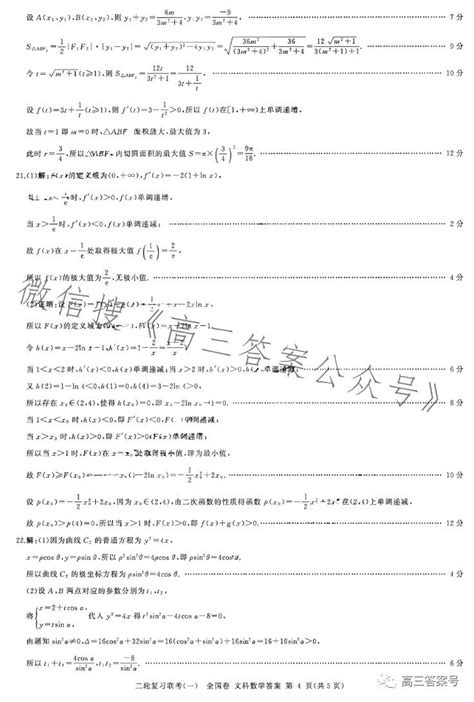 设 A(x₁,y₁),B(x₂,y₂),则 y₁+y₂=6m/(3m²+4),y₁y₂=-9/(3m²+4). 7分
S△ABF₁=1/2|F₁F₂|·|y₁-y₂|=√((y₁+y₂)²-4y₁y₂)=√(36m²/(3m²+4)²+36/(3m²+4))=12√(m²+1)/(3(m²+1)+1). 9分
令 t=√(m²+1)(t≥1),则 S△ABF₁=12t/(3t²+1)=12/(3t+1/t). 10分
设 f(t)=3t+1/t(t≥1),则 f′(t)=3-1/t²>0,所以 f(t)在[1,+∞)上单调递增,
故当 t=1 即 m=0 时,△ABF 面积最大,最大值为 3,
此时 r=3/4,所以△ABF₁内切圆面积的最大值 S=π×(3/4)²=9π/16. 12分
21.(1)解:f(x)的定义域为(0,+∞),f′(x)=-2(1+ln x),
时,f′(x)>0,f(x)单调递增,
当 x>1/e 时,f′(x)<0,f(x)单调递减; 2分
故 f(x)在 x=1/e 处取得极大值 f(1/e)=2/e,
所以 f(x)的极大值为2/e,无极小值. 4分
(2)证明:设 F(x)= x-2xln x,
所以 F(x)的定义域为
令 h(x)=x-2ln x-1,h′(x)=1-2/x=
当 1<x<2 时,h′(x)<0,h(x)单调递减;当 x>2 时,h′(x)>0,h(x)单调递增; 6分
又 h(2)=1-ln 4<0,h(1)=0,h(4)=3-2ln 4>0,
所以存在 x₀∈(2,4),使得 h(x₀)=0,即 x₀-2ln x₀-1=0. 8分
当 1<x<x₀ 时,h(x)<0,即 F′(x)<0,F(x)单调递减;
当 x>x₀ 时,h(x)>0,即 F′(x)>0,F(x)单调递增;
所以当 x>1 时,F(x)在 x=x₀处取得极小值,即为最小值,
故 F(x)≥F(x₀)= (1-2ln x₀)=-1/2x₀²+2x₀. 10分
设 p(x₀)=-1/2x₀²+2x₀,因为 x₀∈(2,4),由二次函数的性质得函数 p(x₀)=-1/2x₀²+2x₀在(2,4)上单调递减,
故 p(x₀)>p(4)=0,所以当 x>1 时,F(x)>0,即 f(x)+g(x)>0. 12分
22.解:(1)因为曲线 C₂ 的普通方程为 y²=4x,
x=ρcos θ,y=ρsin θ,所以 ρ²sin²θ=4ρcos θ,即 ρsin²θ=4cos θ,
所以曲线 C₂ 的极坐标方程为 ρsin²θ=4cos θ. 4分
(2)设 A,B 两点对应的参数分别为 t₁,t₂,
将{x=2+tcos α, y=tsin α, 代入 y²=4x 得 t²sin²α-4tcos α-8=0,
由题知 sin²α≠0,Δ=16cos²α+32sin²α=16(cos²α+sin²α)+16sin²α=16+16sin²α>0,
所以 t₁+t₂=4cos α/sin²α,t₁t₂=-8/sin²α. 6分
二轮复习联考(一) 全国卷 文科数学答案 第 4 页(共 5 页)
微信搜《高三答案公众号》
高三答案号